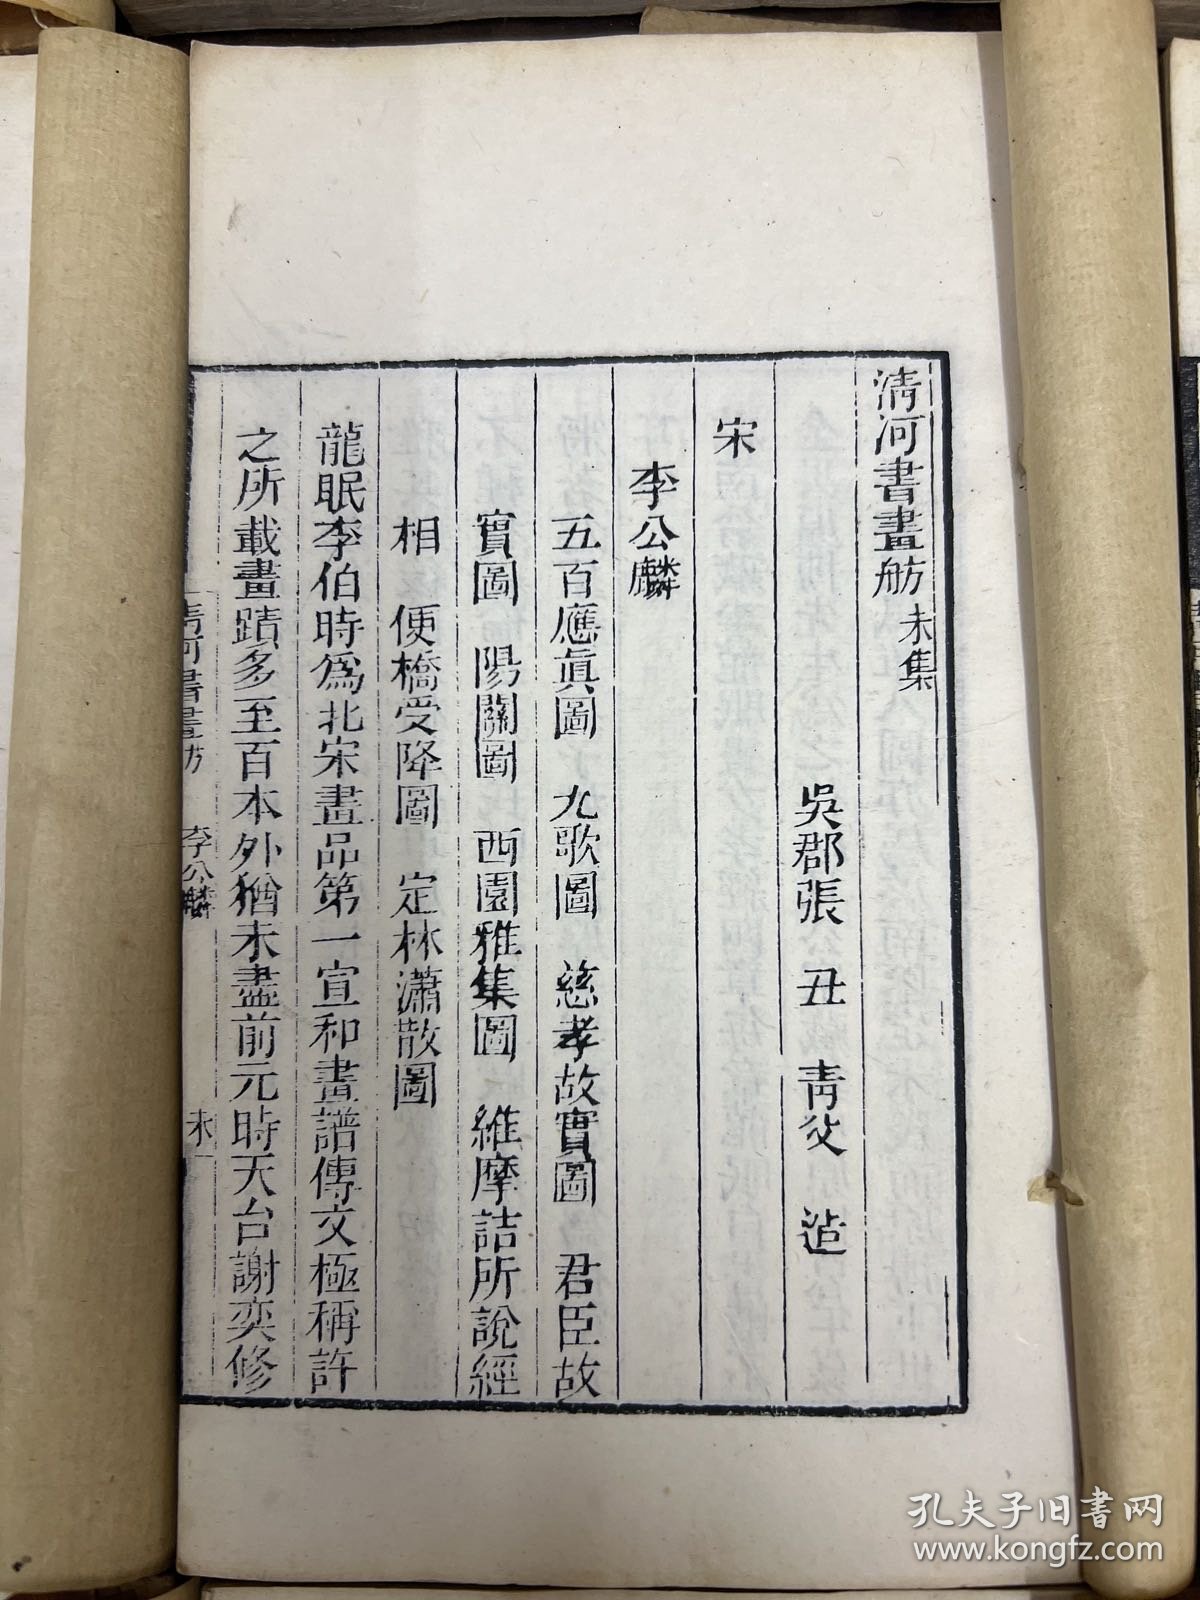 清河書畫舫 未集
吳郡張 丑 青父 造
宋
李公麟
五百應眞圖 九歌圖 慈孝故實圖 君臣故
實圖 陽關圖 西園雅集圖 維摩詰所說經
相 便橋受降圖 定林瀟散圖
龍眠李伯時爲北宋畫品第一宣和畫譜傳文極稱許
之所載畫蹟多至百本外猶未盡前元時天台謝奕修
清河書畫舫 李公麟 未 一
孔夫子旧书网
www.kongfz.com